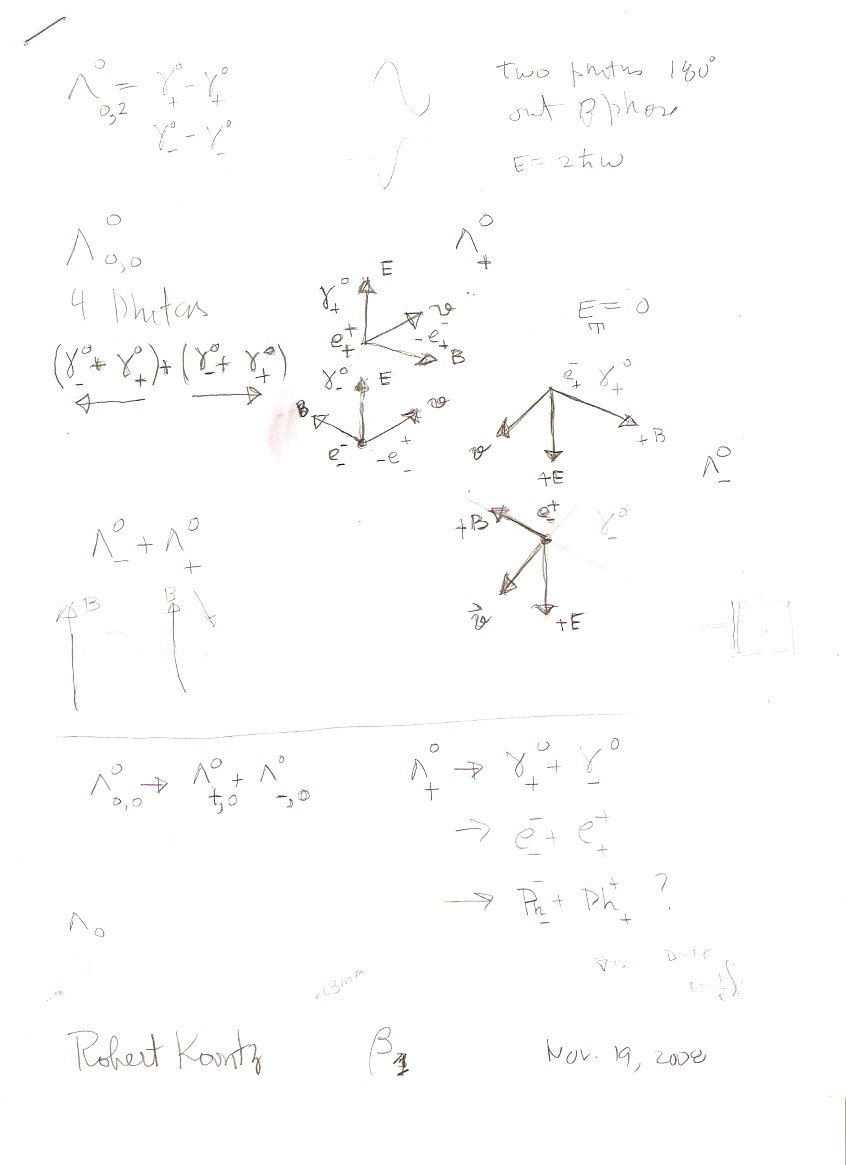 Λ⁰₀,₂ = γ⁰₊ - γ⁰₊
γ⁰₋ - γ⁰₋
two photns 180°
out of phase
E = 2ħω
Λ⁰₀,₀
4 Photons
(γ⁰₋ + γ⁰₊) + (γ⁰₋ + γ⁰₊)
Λ⁰₊
γ⁰₊ E
v
e⁺₊ -e⁻₊
B
γ⁰₋ E
B v
e⁻₋ -e⁺₋
E = 0
T
e⁻₊ γ⁰₊
v +B
+E
Λ⁰₋
+B e⁺₋ γ⁰₋
v⃗ +E
Λ⁰₋ + Λ⁰₊
B B
Λ⁰₀,₀ → Λ⁰₊,₀ + Λ⁰₋,₀
Λ⁰₊ → γ⁰₊ + γ⁰₋
→ e⁻₋ + e⁺₊
→ Ph⁻₋ + Ph⁺₊ ?
Λ₀
~3mm
Robert Koontz
β₁
Nov. 19, 2008